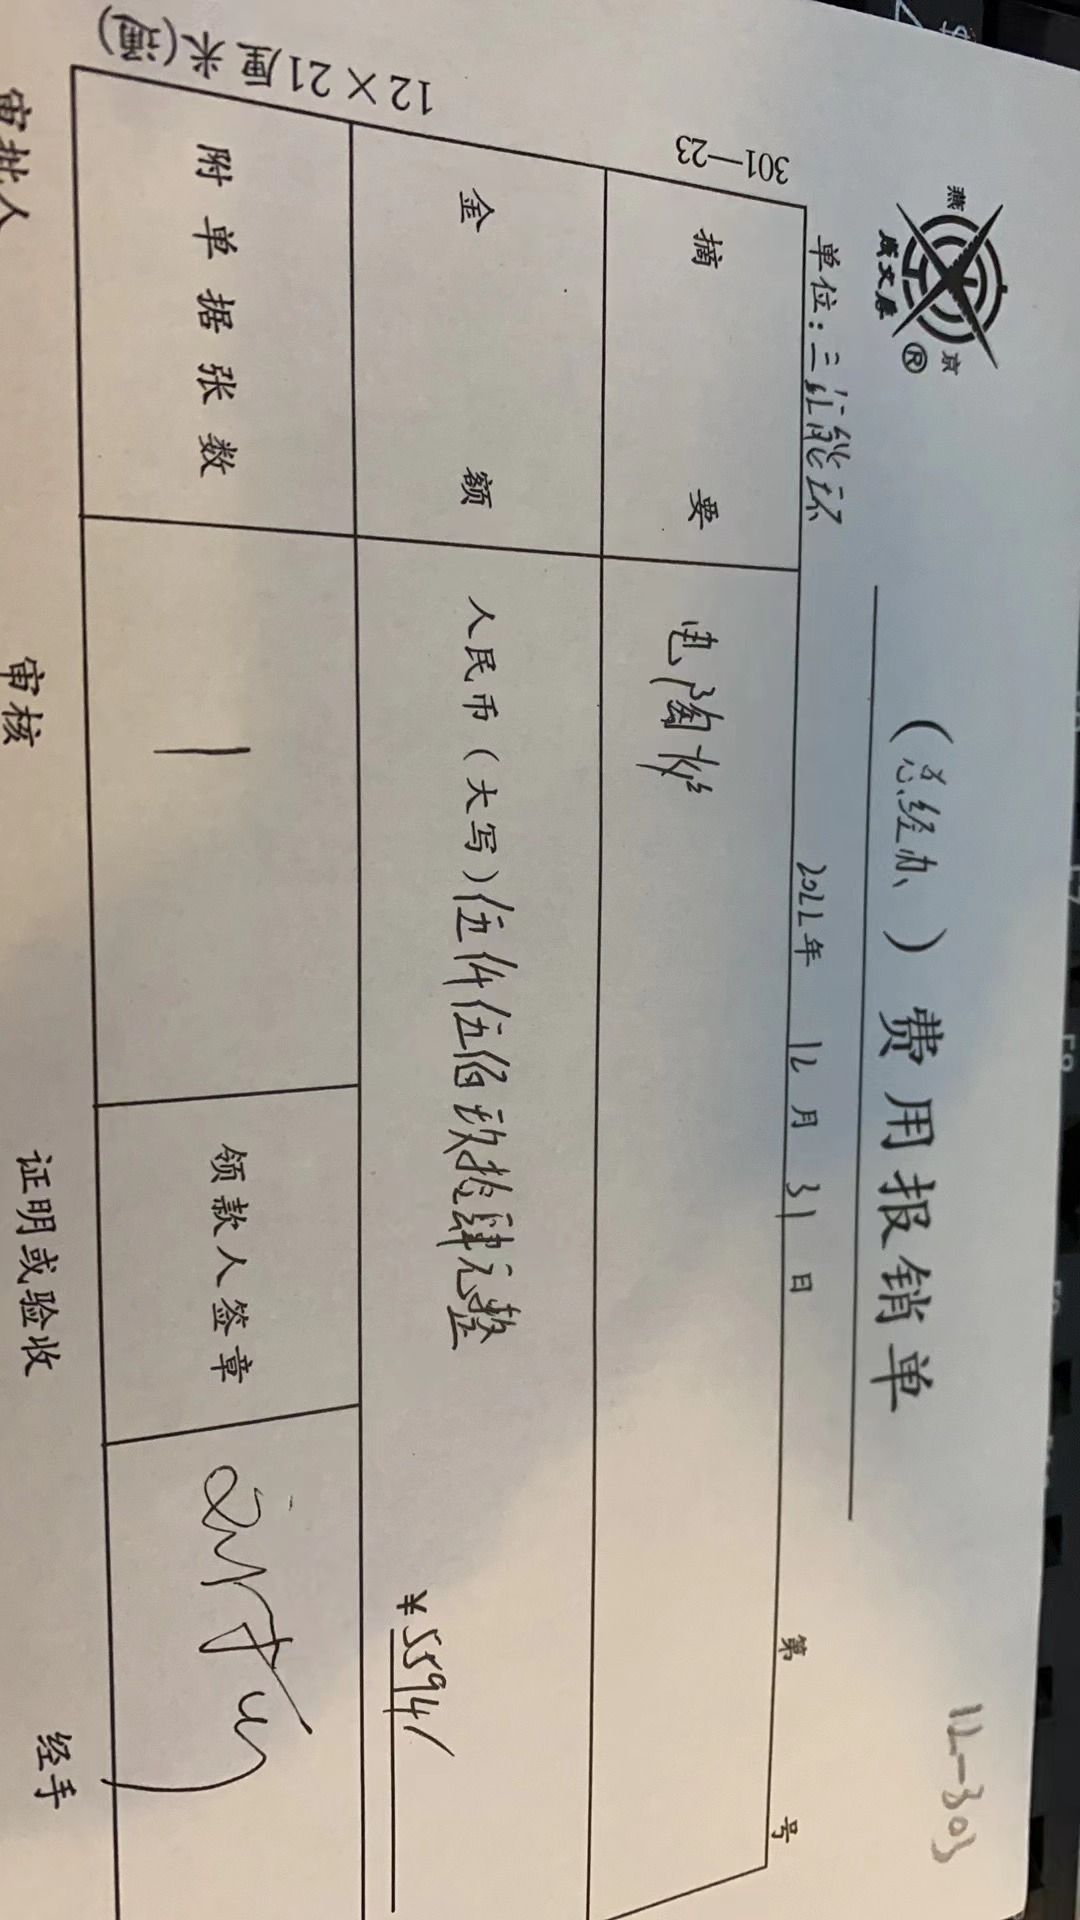 12-303
燕京
成文厚
®
(总经办)费用报销单
单位:三征能环 2022年 12月 31日 第 号
301—23
摘要 电陶炉
金额 人民币(大写)伍仟伍佰玖拾肆元整
¥5594/
附单据张数 1 领款人签章
12×21厘米(通)
审批人 审核 证明或验收 经手